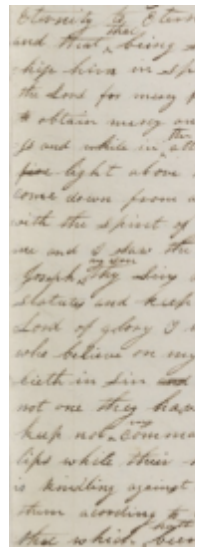 Eternity to Etern
that
and that being
ship him in sp
the Lord for mercy
to obtain mercy an
ss and while in att
the
fire light above
come down from a
with the spirit of
me and I saw the
my son
Joseph thy Sins
statutes and keep
Lord of glory I
who believe on my
lieth in Sin and
not one they hav
my
keep not comma
lips while their
is kindling against
them acording to
hath
that which been